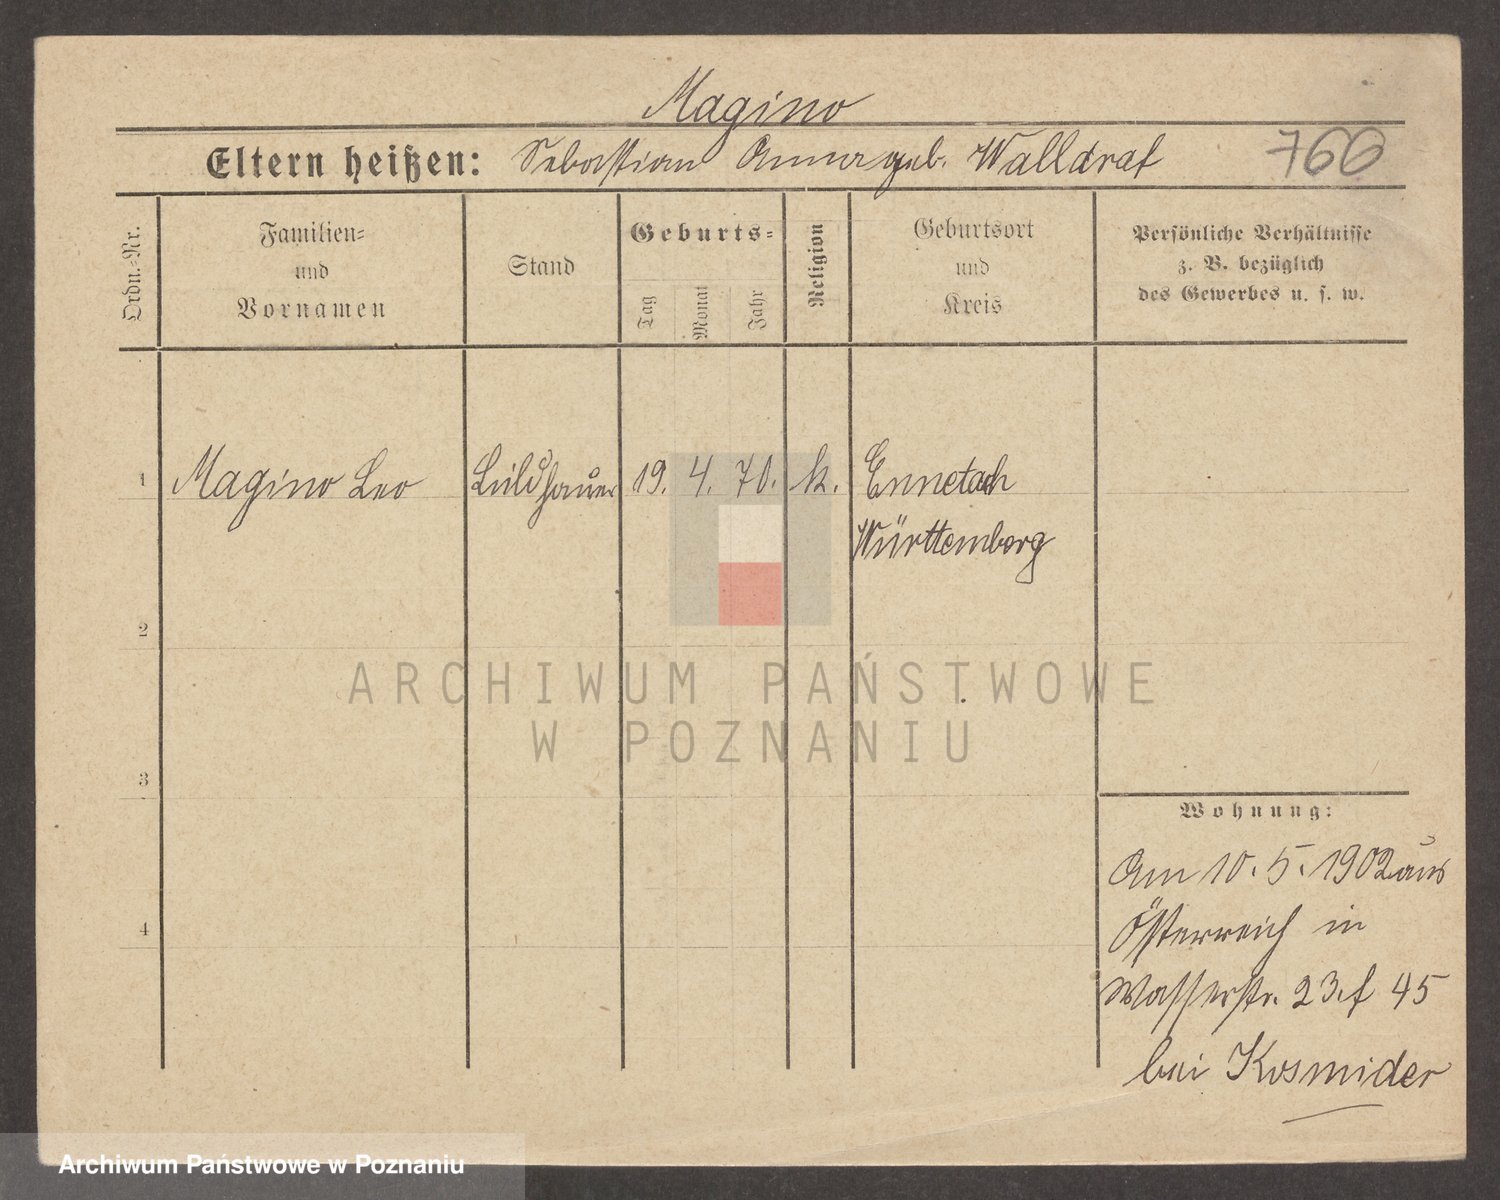 Magino
Eltern heißen: Sebastian Anna geb. Walldraf 766
Ordn.-Nr.
Familien-
und
Vornamen
Stand
Geburts-
Tag
Monat
Jahr
Religion
Geburtsort
und
Kreis
Persönliche Verhältnisse
z. B. bezüglich
des Gewerbes u. s. w.
1 Magino Leo Bildhauer 19. 4. 70. k. Ennetach
Württemberg
2
ARCHIWUM PAŃSTWOWE
W POZNANIU
3
Wohnung:
Am 10. 5. 1902 aus
4
Österreich in
Wasserstr. 23. f 45
bei Kosmider
Archiwum Państwowe w Poznaniu